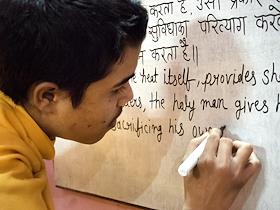 करता है, उसी प्रकार
सुविधाका परित्याग करके
करता है॥
heat itself, provides sh
the holy man gives h
sacrificing his own